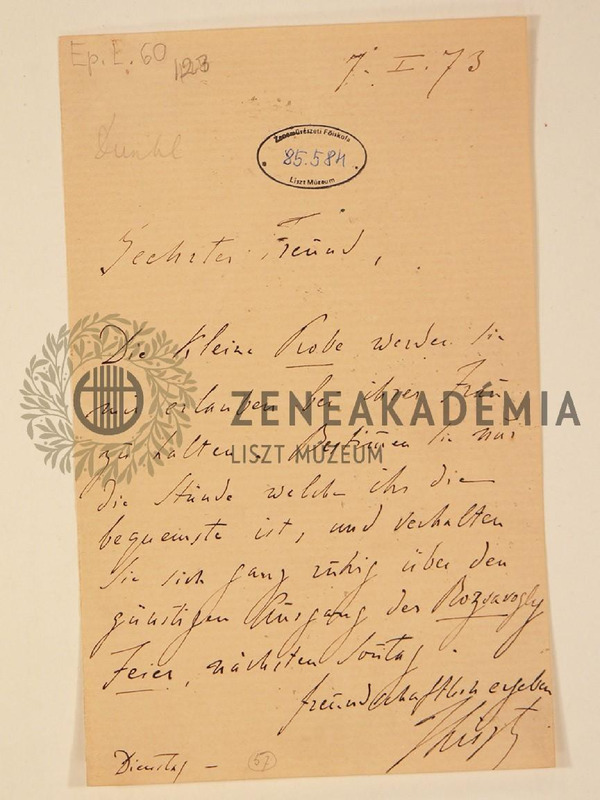 Ep. E. 60
123
7. I. 73
Dunkl
Zeneművészeti Főiskola
85.584
Liszt Múzeum
Geehrter Freund,
Die kleine Probe werden Sie
mir erlauben bei ihrer Frau
zu halten. Bestimen Sie nur
die Stunde welche ihr die
bequemste ist, und verhalten
Sie sich ganz ruhig über den
günstigen Ausgang der Rozsavogly
Feier, nächsten Sontag.
freundschaftlich ergeben
FLiszt
Dienstag –
57
ZENEAKADÉMIA
LISZT MÚZEUM